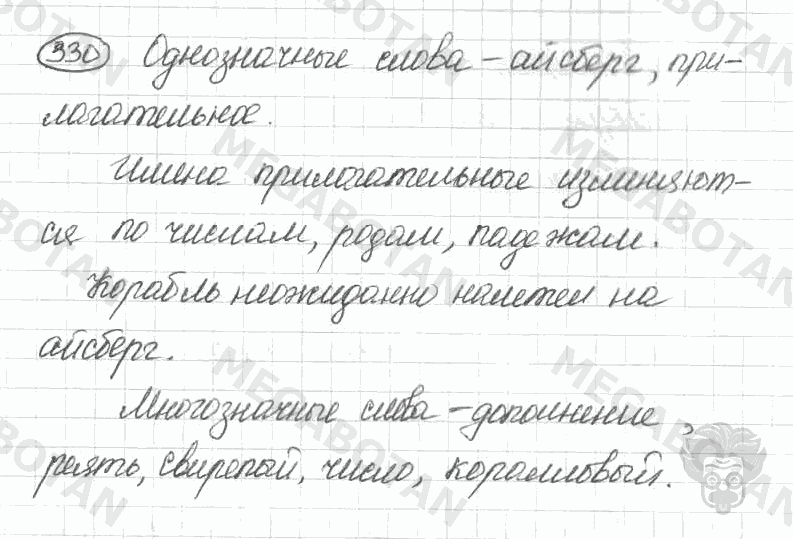 330 Однозначные слова – айсберг, при-
лагательное.
Имена прилагательные изменяют-
ся по числам, родам, падежам.
Корабль неожиданно налетел на
айсберг.
Многозначные слова – дополнение,
реять, свирепый, число, коралловый.
MEGABOTAN